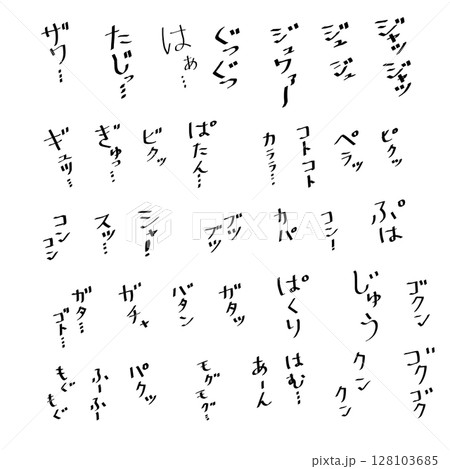 ジャッ
ジャッ
ジュ
ジュ
ジュワァー
ぐっぐっ
はぁ…
たじっ…
ザワ…
ビクッ
ペラッ
コトコト
カララ…
ぱたん…
ビクッ
ぎゅっ…
ギュッ…
ぷは
コシー
カパ
ブッ
ブッ
シャー!
スッ…
コン
コン
ゴクン
じゅう
ぱくり
ガタッ
バタン
ガチャ
ガタ…
ゴト…
ゴクゴク
クン
クン
はむ…
あーん
モグ
モグ…
パクッ
ふーふー
もぐ
もぐ
PIXTA
pixta.jp - 128103685